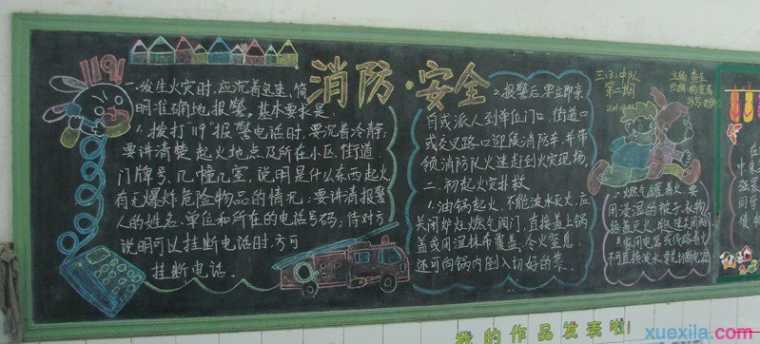 119
消防·安全
一、发生火灾时,应沉着迅速、简
明准确地报警。基本要求是:
1、拨打119报警电话时,要沉着冷静,
要讲清楚起火地点及所在小区、街道、
门牌号、几幢几室,说明是什么东西起火
有无爆炸危险物品的情况,要讲清报警
人的姓名、单位和所在的电话号码,待对方
说明可以挂断电话时,方可
挂断电话。
2、报警后,要立即亲
自或派人到单位门口、街道口
或交叉路口迎候消防车,并带
领消防队火速赶到火灾现场。
二、初起火灾扑救
1、油锅起火,不能泼水灭火,应
关闭炉灶燃气阀门,直接盖上锅
盖或用湿抹布覆盖,令火窒息,
还可向锅内倒入切好的菜。
三(3)中队
第二期
主编
2、燃气罐着火,要
用浸湿的被子、衣物
我的作品发表啦!
xuexila.com